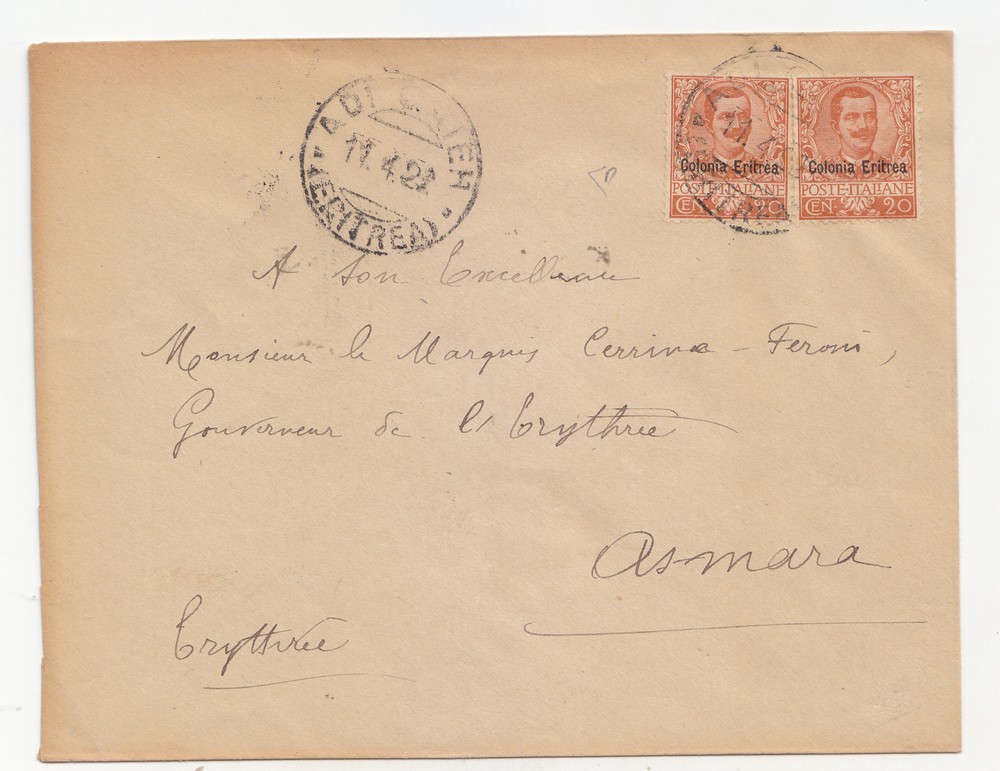 ADI CAIEH
11.4.22
(ERITREA)
Colonia Eritrea
POSTE·ITALIANE
CEN. 20
Colonia Eritrea
POSTE·ITALIANE
CEN. 20
A Son Excellence
Monsieur le Marquis Cerrina-Feroni,
Gouverneur de l'Erythrée
Asmara
Erythrée